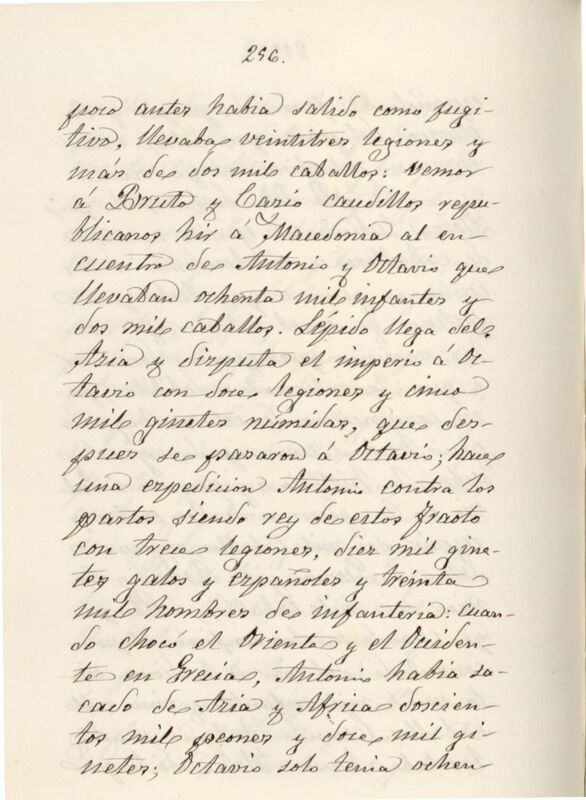 256.
poco antes habia salido como fugi-
tivo, llevaba veintitres legiones y
más de dos mil caballos: vemos
á Bruto y Casio caudillos repu-
blicanos hir á Macedonia al en-
cuentro de Antonio y Octavio que
llevaban ochenta mil infantes y
dos mil caballos. Lépido llega del
Asia y disputa el imperio á Oc-
tavio con doce legiones y cinco
mil ginetes númidas, que des-
pues se pasaron á Octavio; hace
una expedicion Antonio contra los
partos siendo rey de estos Fraoto
con trece legiones, diez mil gine-
tes galos y españoles y treinta
mil hombres de infantería: cuan-
do chocó el Oriente y el Occiden-
te en Grecia, Antonio habia sa-
cado de Asia y Africa doscien-
tos mil peones y doce mil gi-
netes; Octavio solo tenia ochen-